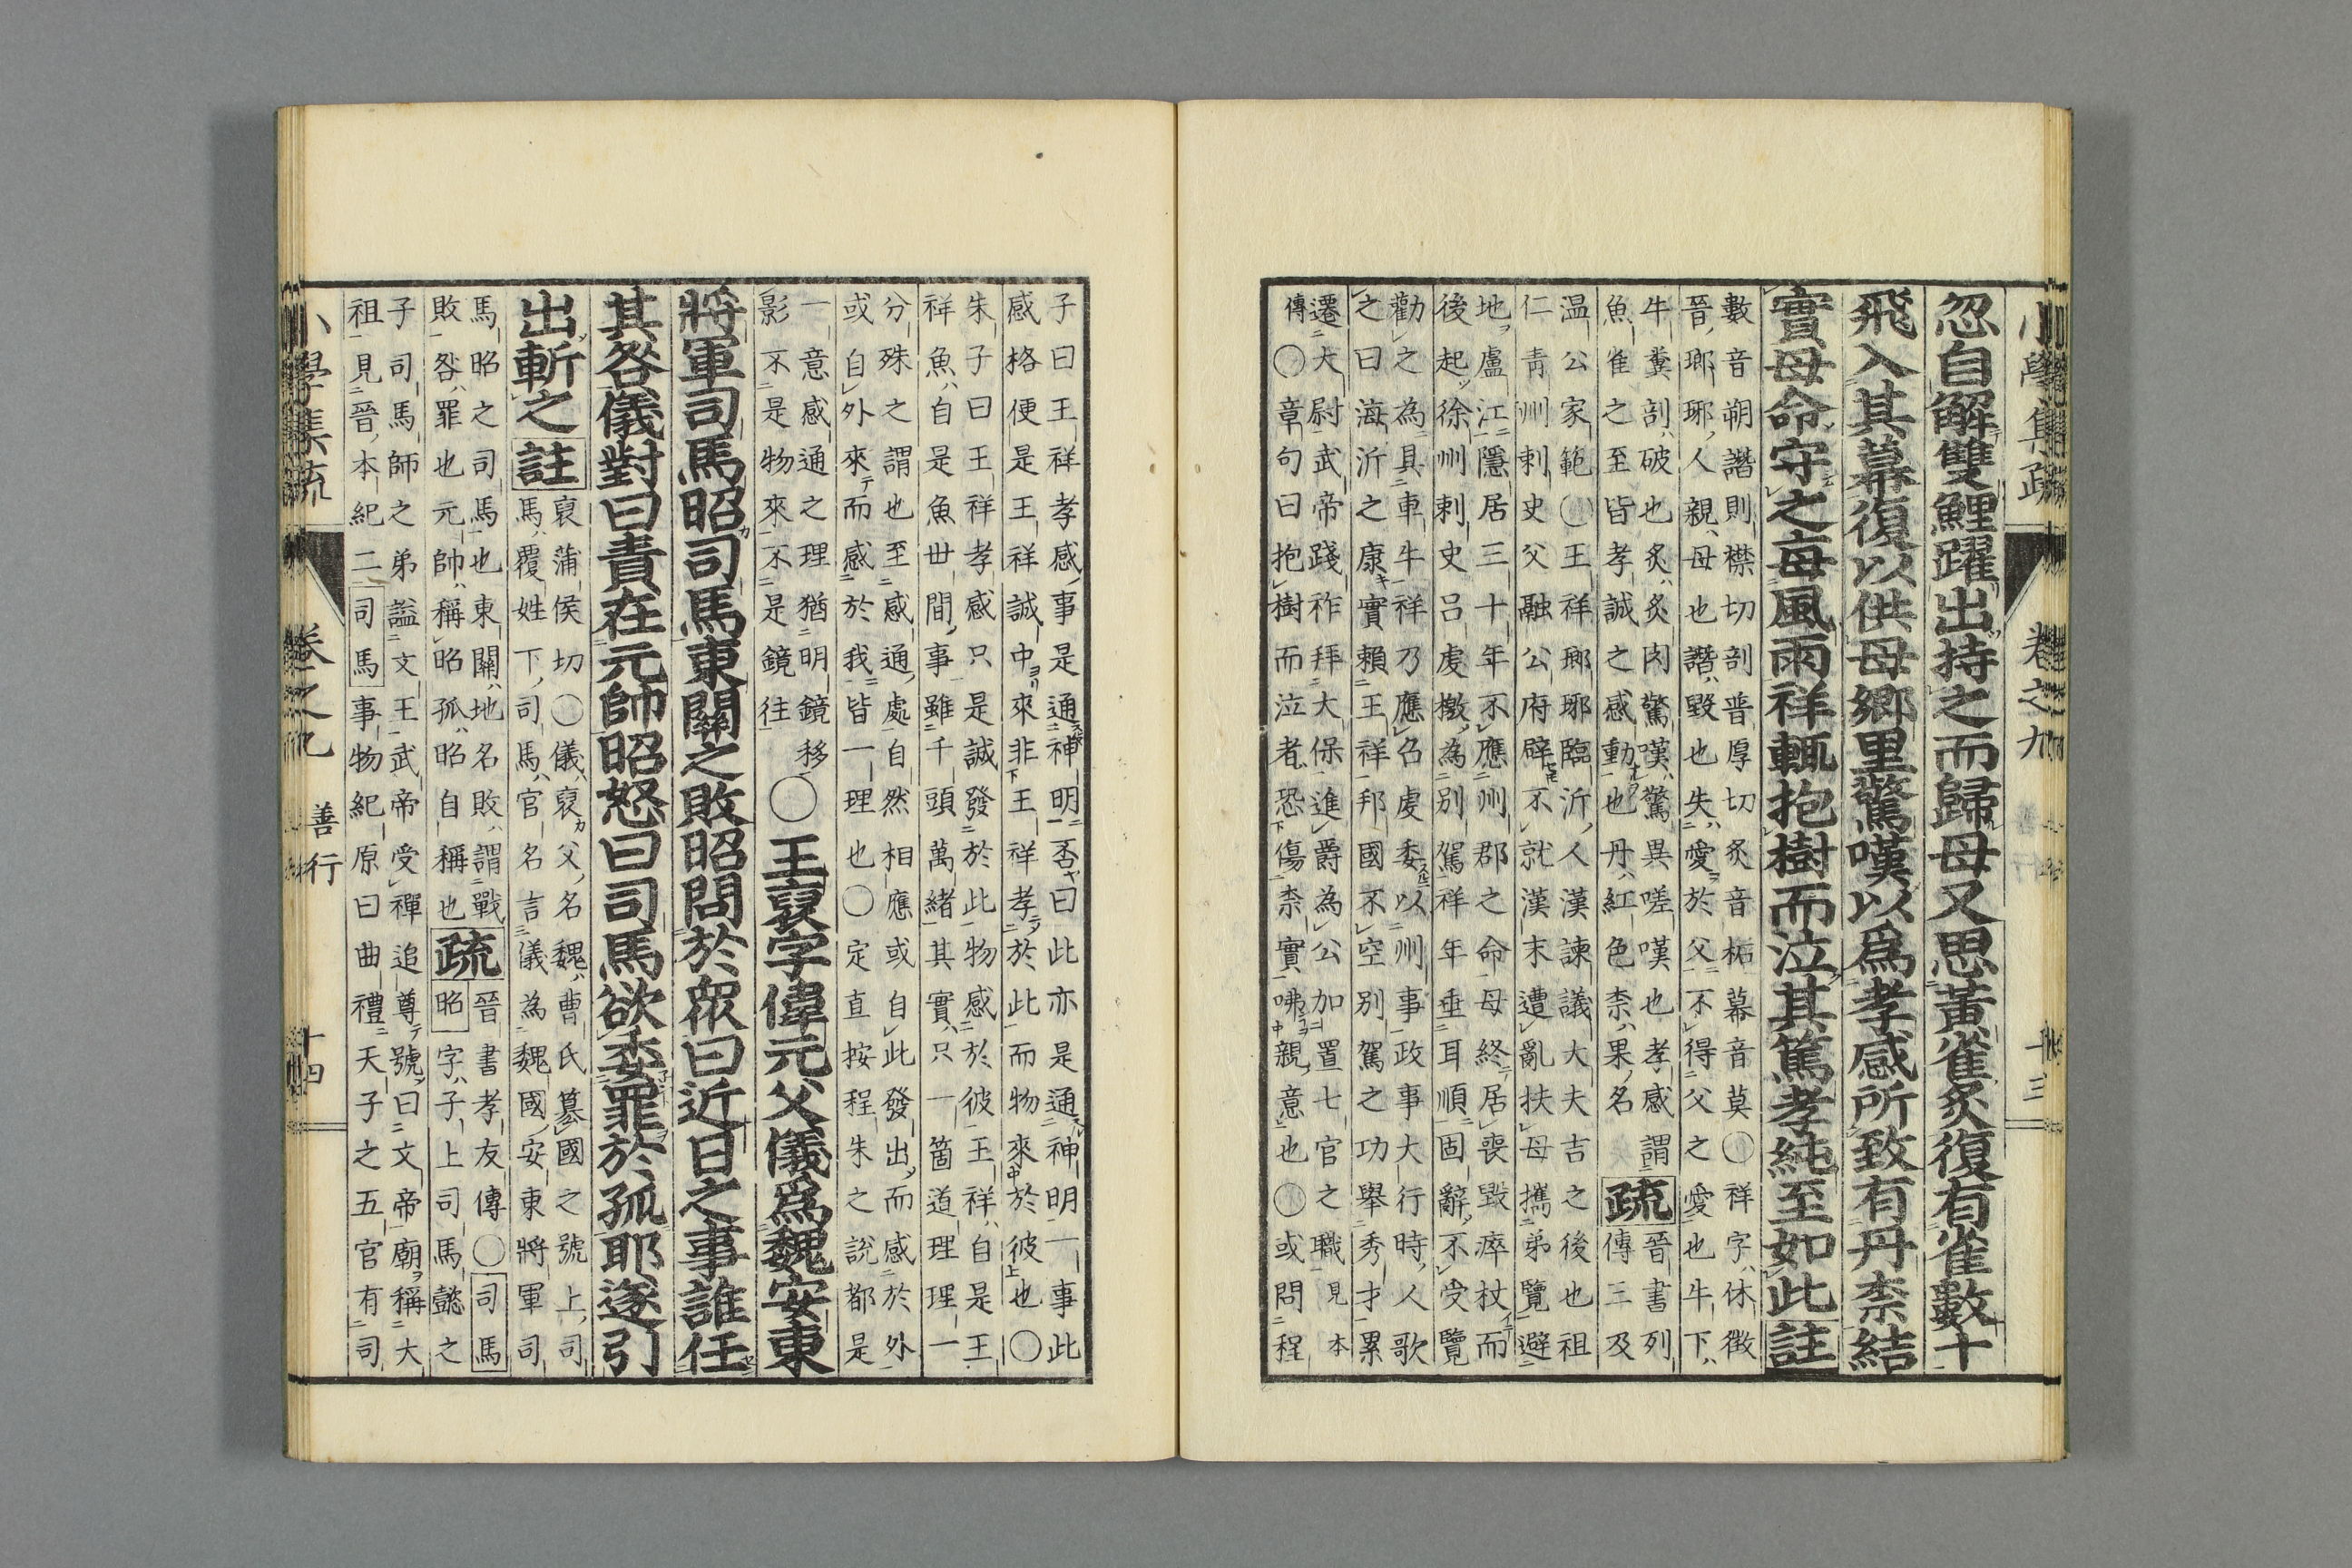 小學集疏　卷之九　十三
忽自解雙鯉躍出持之而歸母又思黃雀炙復有雀數十
飛入其幕復以供母鄉里驚嘆以爲孝感所致有丹柰結
實母命守之每風雨祥輒抱樹而泣其篤孝純至如此註
數音朔譖則襟切剖普厚切炙音柘幕音莫〇祥字休徵
晉瑯琊人親母也譖毀也失愛於父不得父之愛也牛下
牛糞剖破也炙炙肉驚嘆驚異嗟嘆也孝感謂
魚雀之至皆孝誠之感動也丹紅色柰果名
疏
晉書列
傳三及
温公家範〇王祥瑯琊臨沂人漢諫議大夫吉之後也祖
仁青州刺史父融公府辟不就漢末遭亂扶母攜弟覽避
地盧江隱居三十年不應州郡之命母終居喪毀瘁杖而
後起徐州刺史呂虔檄為別駕祥年垂耳順固辭不受覽
勸之為具車牛祥乃應召虔委以州事政事大行時人歌
之曰海沂之康實賴王祥邦國不空別駕之功舉秀才累
遷大尉武帝踐祚拜大保進爵為公加置七官之職見本
傳〇章句曰抱樹而泣者恐傷柰實咈親意也〇或問程
子曰王祥孝感事是通神明否曰此亦是通神明一事此
感格便是王祥誠中來非王祥孝於此而物來於彼也〇
朱子曰王祥孝感只是誠發於此物感於彼王祥自是王
祥魚自是魚世間事雖千頭萬緒其實只一箇道理理一
分殊之謂也至感通處自然相應或自此發出而感於外
或自外來而感於我皆一理也〇定直按程朱之説都是
一意感通之理猶明鏡移
影不是物來不是鏡往
〇王裒字偉元父儀爲魏安東
將軍司馬昭司馬東關之敗昭問於衆曰近日之事誰任
其咎儀對曰責在元帥昭怒曰司馬欲委罪於孤耶遂引
出斬之註
裒蒲侯切〇儀裒父名魏曹氏簒國之號上司
馬覆姓下司馬官名言儀為魏國安東將軍司
馬昭之司馬也東關地名敗謂戰
敗咎罪也元帥稱昭孤昭自稱也
疏
晉書孝友傳〇司馬
昭字子上司馬懿之
子司馬師之弟謚文王武帝受禪追尊號曰文帝廟稱大
祖見晉本紀二司馬事物紀原曰曲禮天子之五官有司
小學集疏　卷之九　善行　十四